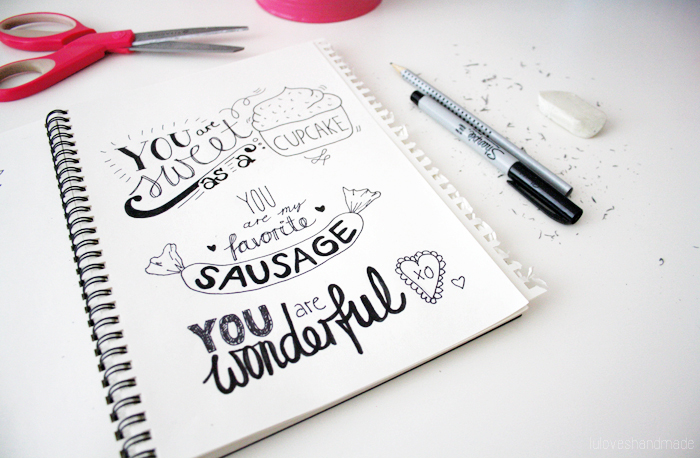 YOU are
sweet
as a
CUPCAKE
YOU
are my
favorite
SAUSAGE
YOU are
wonderful
XO
Sharpie
luloveshandmade